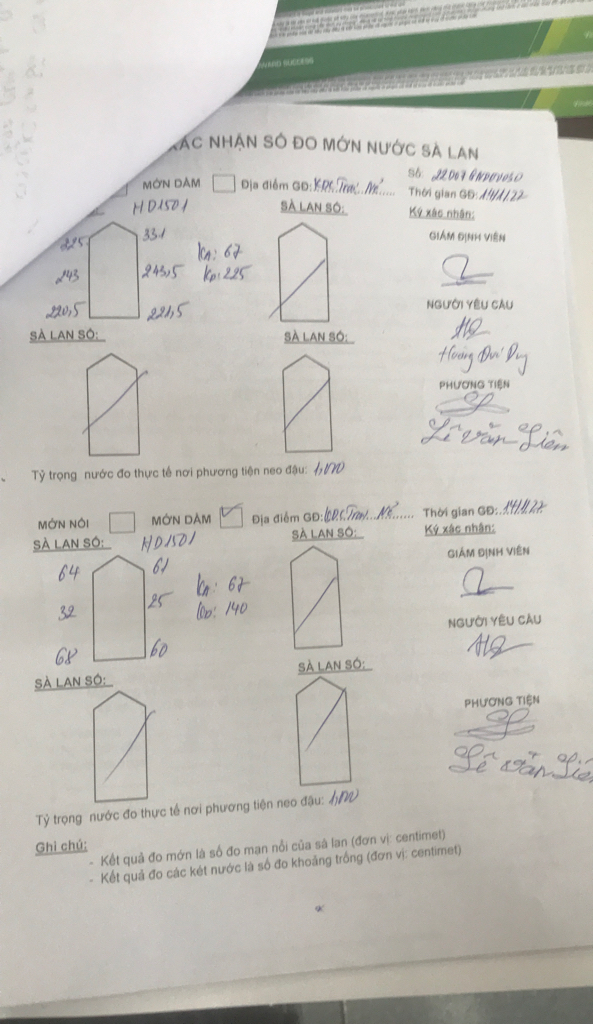 WARD SUCCESS
XÁC NHẬN SỐ ĐO MỚN NƯỚC SÀ LAN
Số:
MỚN DÀM Địa điểm GĐ: Thời gian GĐ: 14/1/22
HD1501 SÀ LAN SỐ: Ký xác nhận:
225 331 KA: 67 GIÁM ĐỊNH VIÊN
243 243,5 KD: 225
220,5 221,5 NGƯỜI YÊU CẦU
SÀ LAN SỐ: SÀ LAN SỐ:
Hoàng Đức Duy
PHƯƠNG TIỆN
Lê Văn Liên
Tỷ trọng nước đo thực tế nơi phương tiện neo đậu: 1,000
MỚN NỔI MỚN DÀM Địa điểm GĐ: Thời gian GĐ:
SÀ LAN SỐ: HD1501 SÀ LAN SỐ: Ký xác nhận:
64 61 KA: 67 GIÁM ĐỊNH VIÊN
32 25 KD: 140
68 60 NGƯỜI YÊU CẦU
SÀ LAN SỐ: SÀ LAN SỐ:
PHƯƠNG TIỆN
Lê Văn Liên
Tỷ trọng nước đo thực tế nơi phương tiện neo đậu: 1,000
Ghi chú:
- Kết quả đo mớn là số đo mạn nổi của sà lan (đơn vị: centimet)
- Kết quả đo các két nước là số đo khoảng trống (đơn vị: centimet)